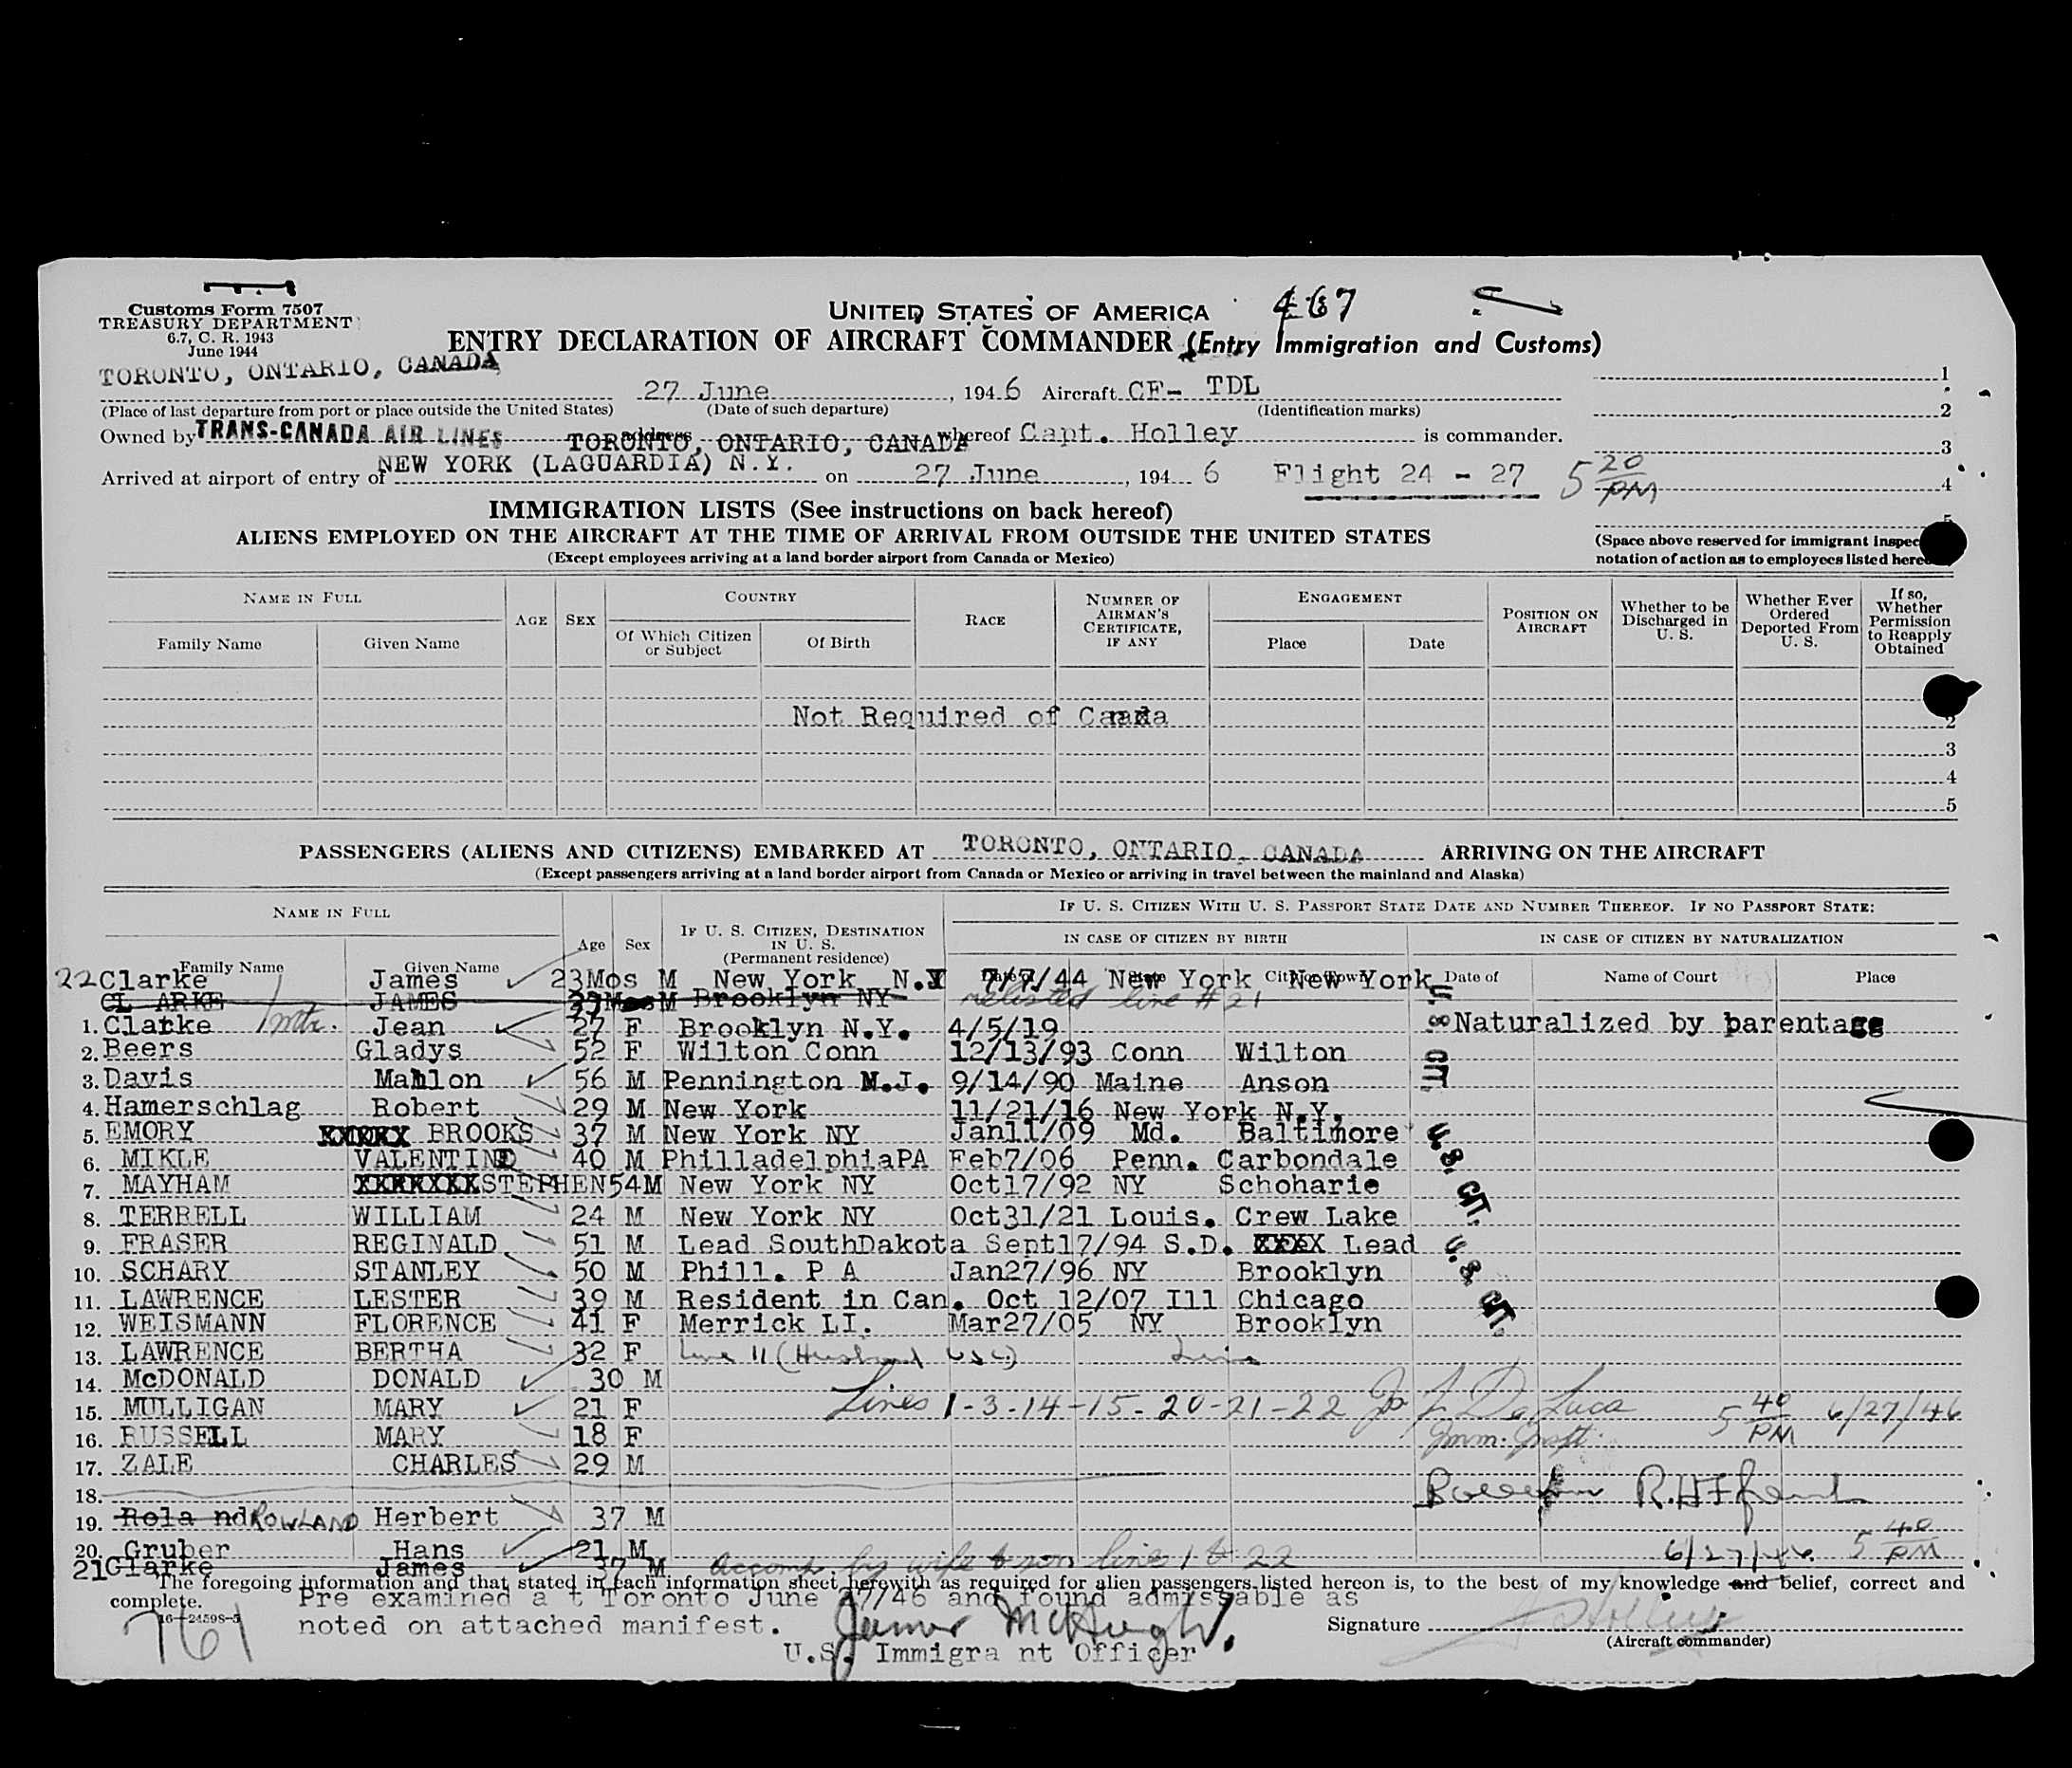 Customs Form 7507
TREASURY DEPARTMENT
6.7, C. R. 1943
June 1944
UNITED STATES OF AMERICA 467
ENTRY DECLARATION OF AIRCRAFT COMMANDER (Entry Immigration and Customs)
TORONTO, ONTARIO, CANADA 27 June, 1946 Aircraft CF- TDL 1
(Place of last departure from port or place outside the United States) (Date of such departure) (Identification marks) 2
Owned by TRANS-CANADA AIR LINES address TORONTO, ONTARIO, CANADA whereof Capt. Holley is commander. 3
Arrived at airport of entry of NEW YORK (LAGUARDIA) N.Y. on 27 June, 194 6 Flight 24 - 27 5 20 PM 4
IMMIGRATION LISTS (See instructions on back hereof) 5
ALIENS EMPLOYED ON THE AIRCRAFT AT THE TIME OF ARRIVAL FROM OUTSIDE THE UNITED STATES
(Except employees arriving at a land border airport from Canada or Mexico)
(Space above reserved for immigrant inspec
notation of action as to employees listed here
NAME IN FULL
Family Name Given Name
AGE SEX
COUNTRY
Of Which Citizen or Subject Of Birth
RACE
NUMBER OF AIRMAN'S CERTIFICATE, IF ANY
ENGAGEMENT
Place Date
POSITION ON AIRCRAFT
Whether to be Discharged in U. S.
Whether Ever Ordered Deported From U. S.
If so, Whether Permission to Reapply Obtained
Not Required of Canada 2
3
4
5
PASSENGERS (ALIENS AND CITIZENS) EMBARKED AT TORONTO, ONTARIO, CANADA ARRIVING ON THE AIRCRAFT
(Except passengers arriving at a land border airport from Canada or Mexico or arriving in travel between the mainland and Alaska)
NAME IN FULL
Family Name Given Name
Age Sex
IF U. S. CITIZEN, DESTINATION IN U. S. (Permanent residence)
IF U. S. CITIZEN WITH U. S. PASSPORT STATE DATE AND NUMBER THEREOF. IF NO PASSPORT STATE:
IN CASE OF CITIZEN BY BIRTH IN CASE OF CITIZEN BY NATURALIZATION
Date of Name of Court Place
22 Clarke James 23Mos M New York N.Y 7/7/44 New York New York
CL ARKE JAMES 23Mos M Brooklyn NY relisted line #21
1. Clarke Jean 27 F Brooklyn N.Y. 4/5/19 Naturalized by parentage
2. Beers Gladys 52 F Wilton Conn 12/13/93 Conn Wilton
3. Davis Mahlon 56 M Pennington N.J. 9/14/90 Maine Anson
4. Hamerschlag Robert 29 M New York 11/21/16 New York N.Y.
5. EMORY BROOKS 37 M New York NY Jan11/09 Md. Baltimore
6. MIKLE VALENTINE 40 M PhilladelphiaPA Feb7/06 Penn. Carbondale
7. MAYHAM STEPHEN 54 M New York NY Oct17/92 NY Schoharie
8. TERRELL WILLIAM 24 M New York NY Oct31/21 Louis. Crew Lake
9. FRASER REGINALD 51 M Lead SouthDakota Sept17/94 S.D. XXXX Lead
10. SCHARY STANLEY 50 M Phill. P A Jan27/96 NY Brooklyn
11. LAWRENCE LESTER 39 M Resident in Can. Oct 12/07 Ill Chicago
12. WEISMANN FLORENCE 41 F Merrick LI. Mar27/05 NY Brooklyn
13. LAWRENCE BERTHA 32 F Line 11 (Husband USC)
14. McDONALD DONALD 30 M
15. MULLIGAN MARY 21 F Lines 1-3-14-15-20-21-22 Jos L De Luca 5 40 PM 6/27/46
16. RUSSELL MARY 18 F Imm. Inspt.
17. ZALE CHARLES 29 M
18.
19. Rola nd ROWLAND Herbert 37 M
20. Gruber Hans 21 M 6/27/46 5 40 PM
21 Clarke James 37 M Accomp by wife & son lines 1 & 22
U.S. CIT.
U.S. CIT.
U.S. CIT.
The foregoing information and that stated in each information sheet herewith as required for alien passengers listed hereon is, to the best of my knowledge and belief, correct and
complete. Pre examined a t Toronto June 27/46 and found admissable as
16-24598-3 noted on attached manifest. James McHugh Signature
761 U.S. Immigra nt Officer (Aircraft commander)